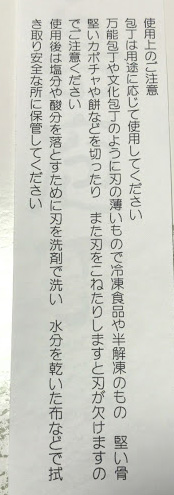 使用上のご注意
包丁は用途に応じて使用してください
万能包丁や文化包丁のように刃の薄いもので冷凍食品や半解凍のもの　堅い骨
堅いカボチャや餅などを切ったり　また刃をこねたりしますと刃が欠けますの
でご注意ください
使用後は塩分や酸分を落とすために刃を洗剤で洗い　水分を乾いた布などで拭
き取り安全な所に保管してください